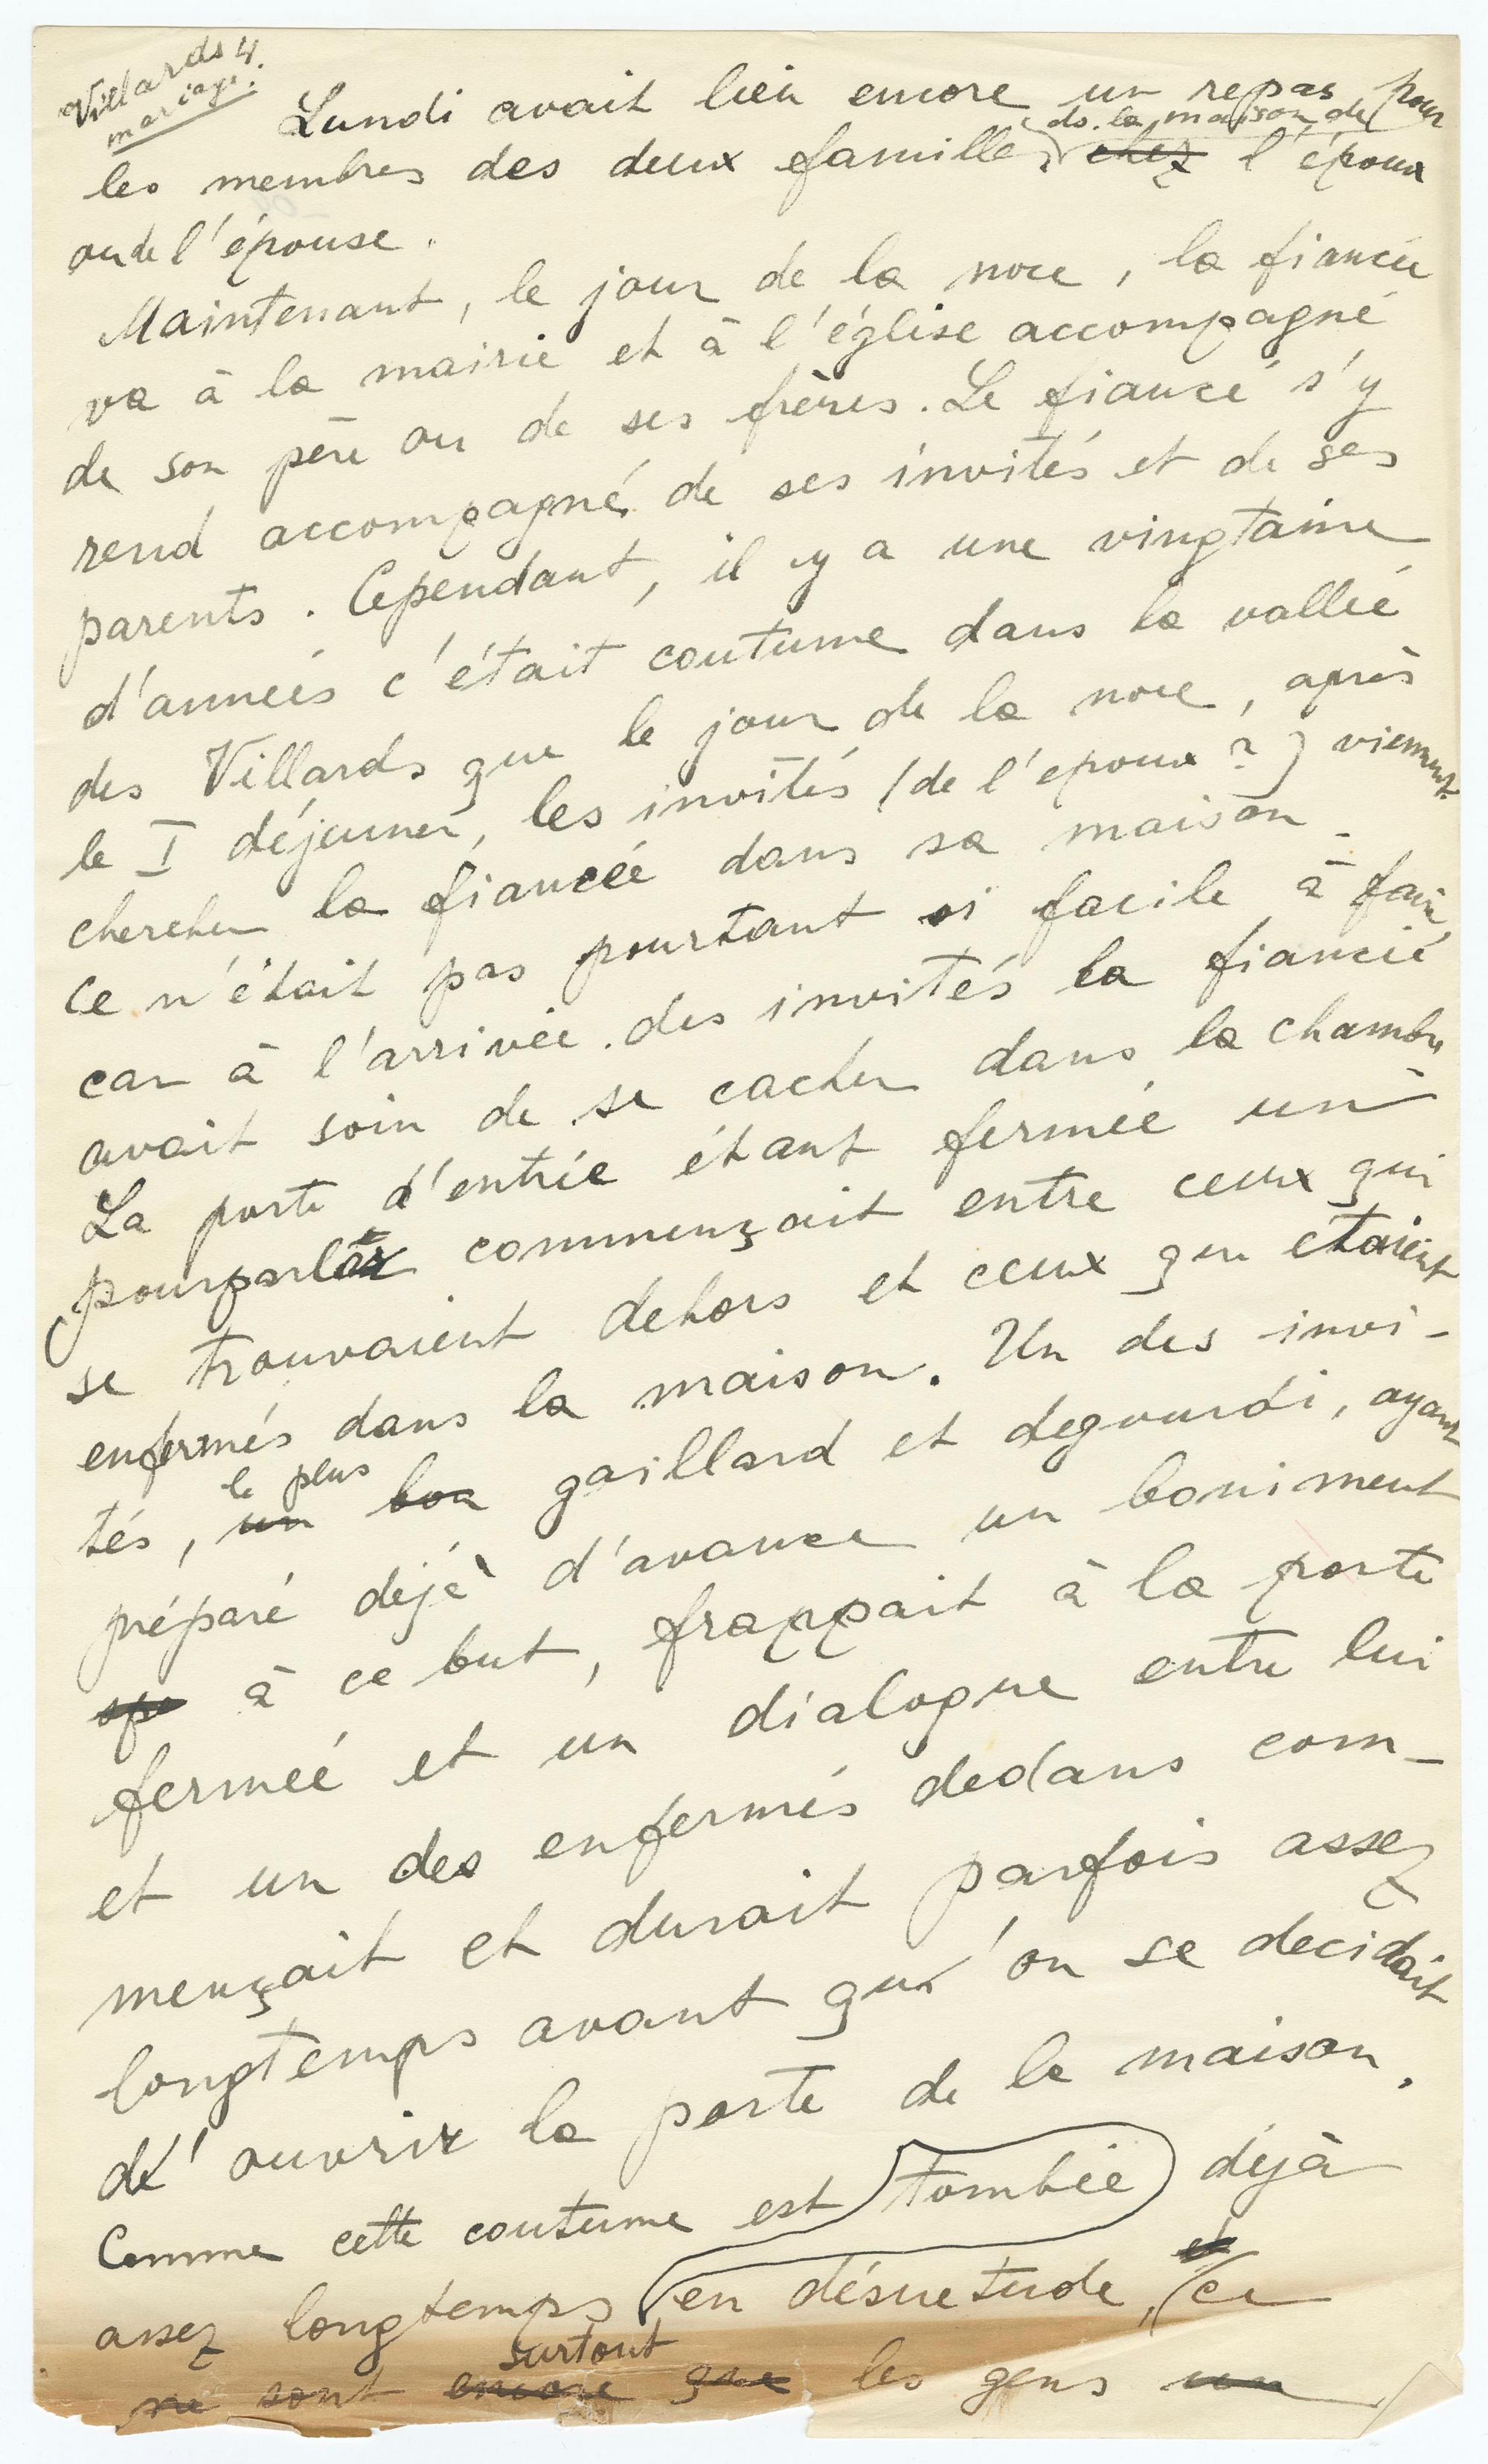 Villards 4.
mariage.
Lundi avait lieu encore un repas pour
ds. la maison de
les membres des deux familles, chez l'époux
ou de l'épouse.
Maintenant, le jour de la noce, la fiancée
va à la mairie et à l'église accompagné
de son père ou de ses frères. Le fiancé s'y
rend accompagné de ses invités et de ses
parents. Cependant, il y a une vingtaine
d'années c'était coutume dans la vallée
des Villards que le jour de la noce, après
le I déjeuner, les invités (de l'epoux ?) viennent
chercher la fiancée dans sa maison.
Ce n'était pas pourtant si facile à faire,
car à l'arrivée des invités la fiancée
avait soin de se cacher dans la chambre
La porte d'entrée étant fermée un
pourparler commençait entre ceux qui
se trouvaient dehors et ceux qui etaient
enfermés dans la maison. Un des invi-
le plus
tés, un bon gaillard et degourdi, ayant
préparé dejà d'avance un boniment
à ce but, frappait à la porte
fermée et un dialogue entre lui
et un des enfermés dedans com-
mençait et durait parfois assez
longtemps avant qu'on se decidait
d'ouvrir la porte de la maison.
Comme cette coutume est tombée déjà
assez longtemps en désuetude, ce
surtout
ne sont encore que les gens un